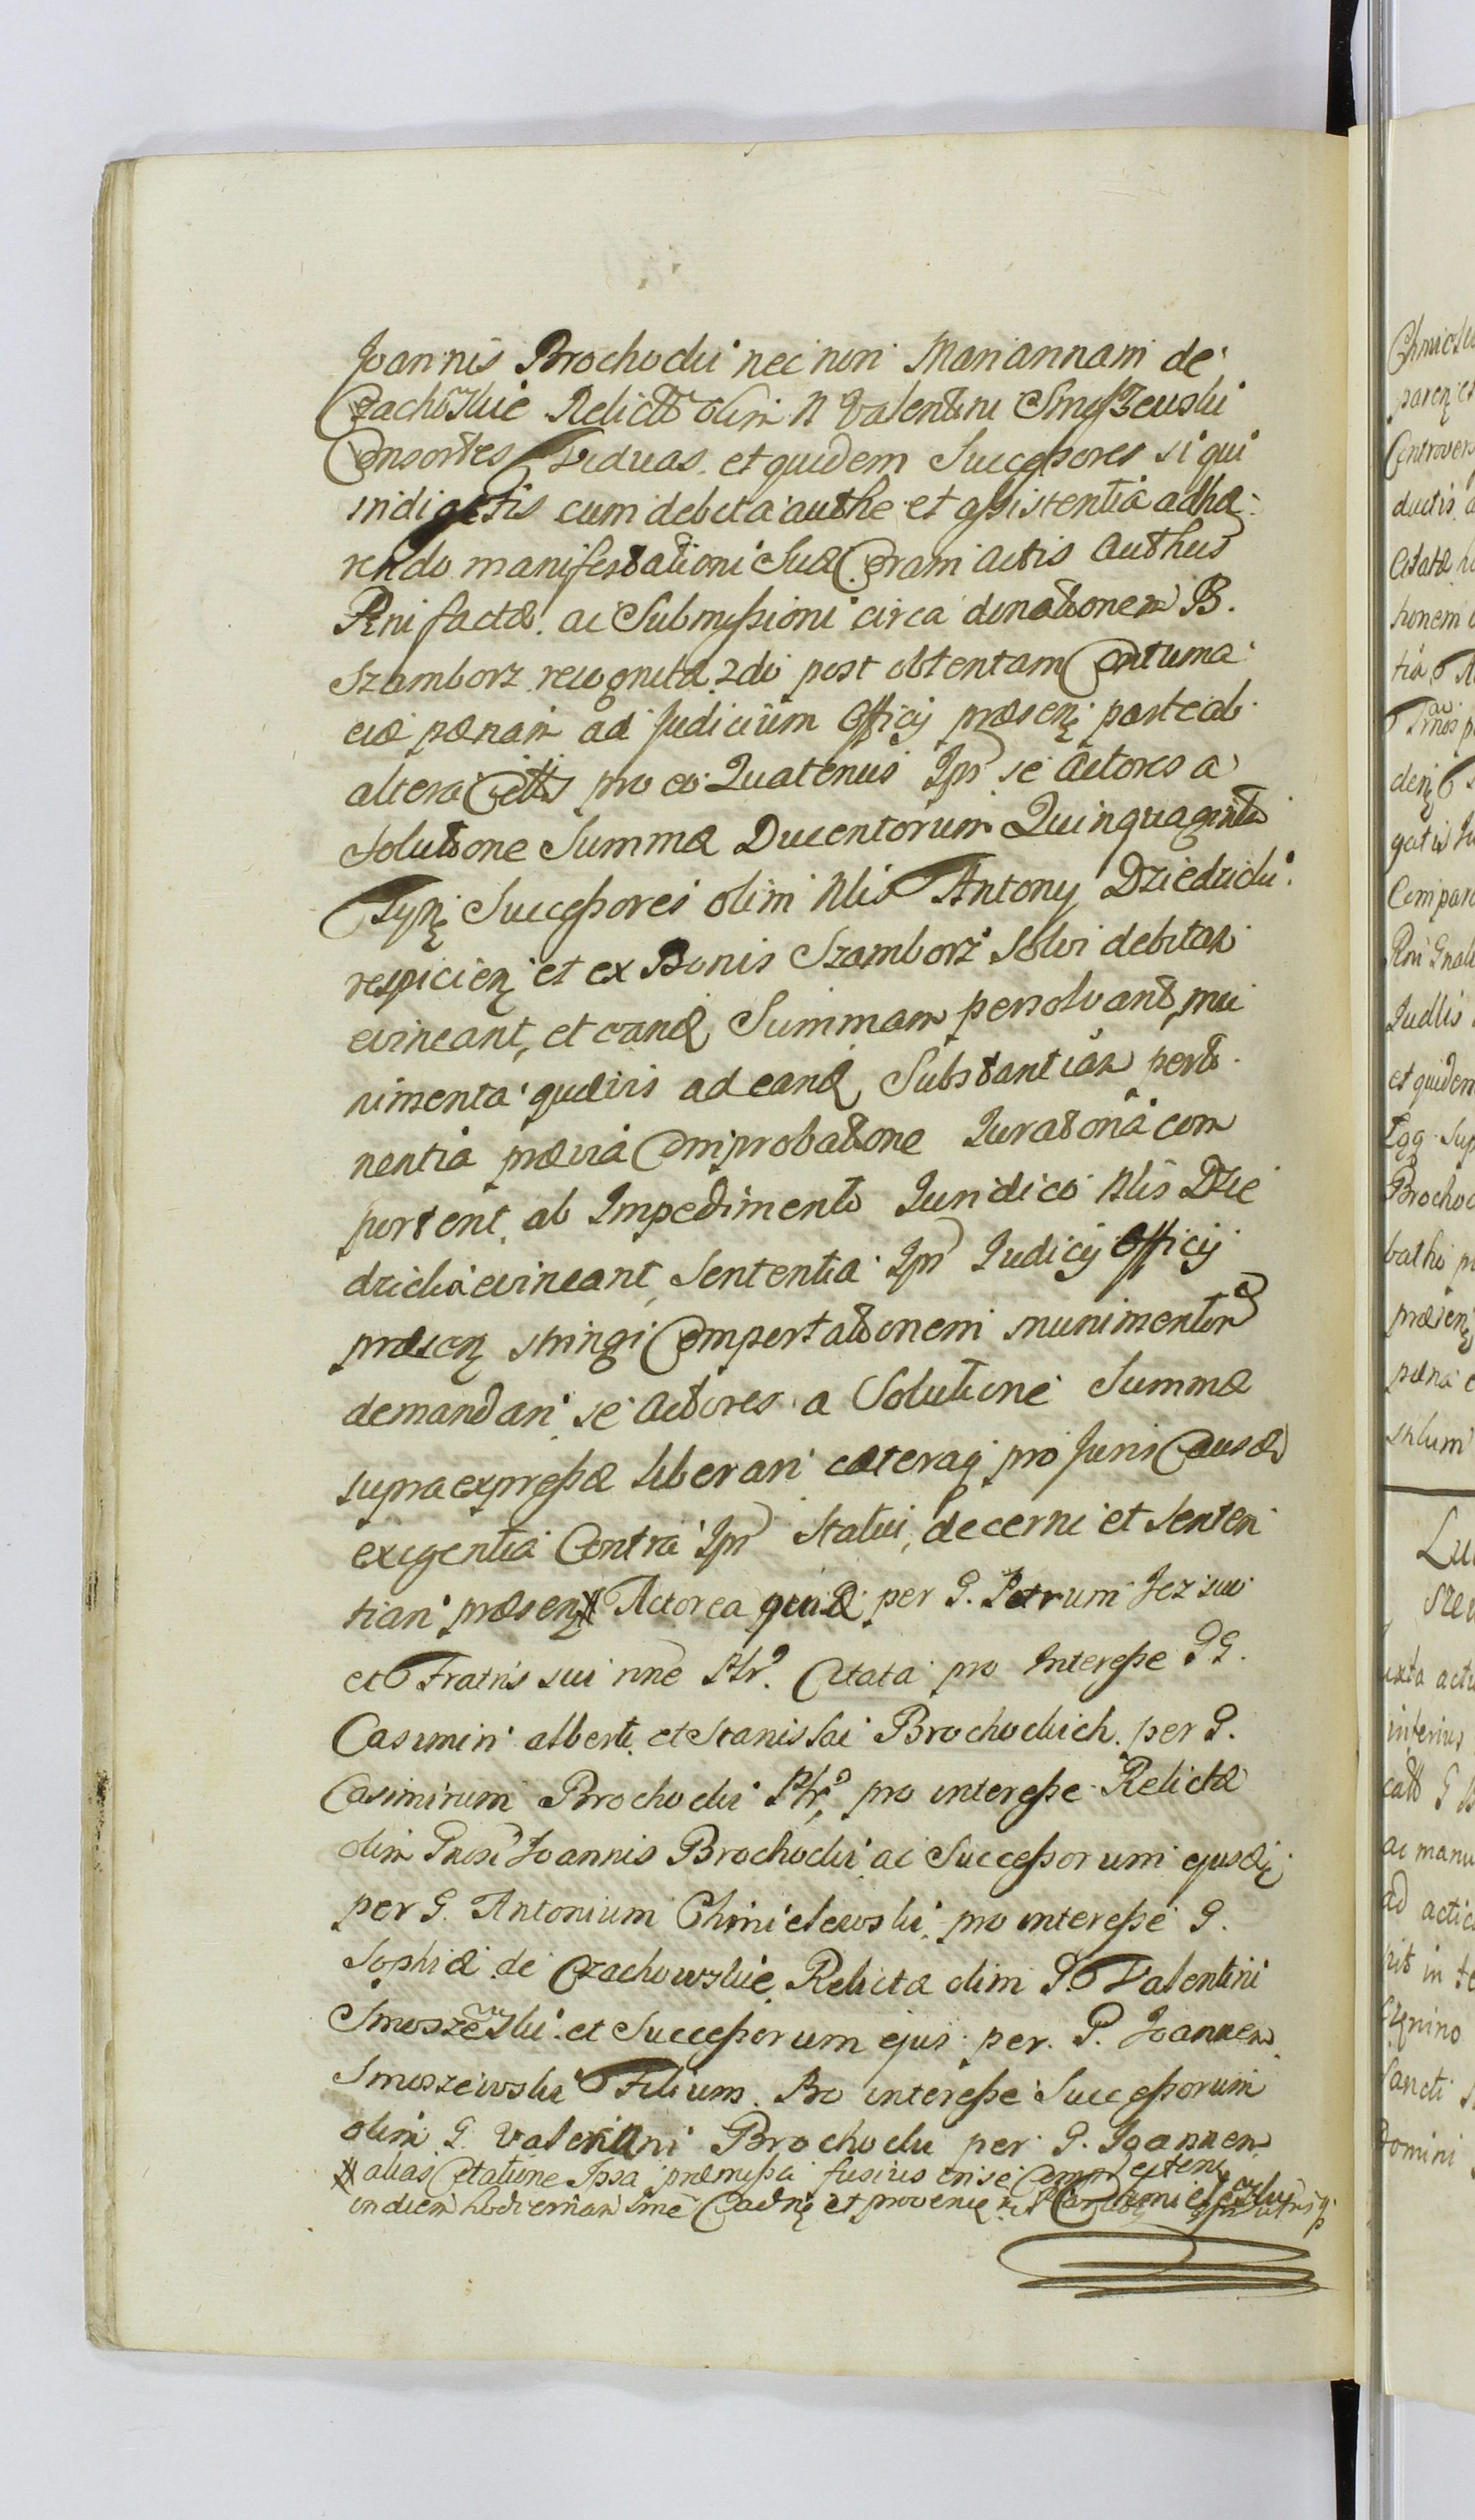 Joannis Brochocki nec non Mariannam de
Czachowskie Relict olim N Valentini Smoszewski
Consortes Viduas et quidem Successores si qui
indigetis cum debita authe et assistentia adhæ-
rendo manifestationi suæ Coram actis authus
Pni factæ ac Submissioni circa donationem B.
Szamborz recognitæ 2do post obtentam Contuma
ciæ pænam ad Judicium Officij præsenę parte ab
altera Citts pro eo Quatenus Ipsi se Actores a
Solutione Summæ Ducentorum Quinquaginta
Typę Successores olim Nlis Antonij Dziedzicki
respicienę et ex Bonis Szamborz solvi debitam
evincant, et eandę Summam persolvant, mu
nimenta quævis ad eandę Substantiam perti
nentia prævia Comprobatione Juratoria com
portent, ab Impedimento Juridico Nlis Dzie
dzicki evincant, Sententia Ipsi Judicij Officij
præsenę stringi Comportationem munimentor
demandari se Actores a Solutione Summæ
supraexpressæ liberari cæteraq pro Juris Causæ
exigentia Contra Ipsi Statui, decerni et senten
tiari præsenę # Actorea quidę per G. Petrum Jezium
et Fratris sui nne Phr. Citata pro Interesse GG.
Casimiri alberti et Stanislai Brochockich per G.
Casimirum Brochocki Phr, pro interesse Relictæ
olim Gnosi Joannis Brochocki ac Successorum ejusdę
per G. Antonium Chmielewski, pro interesse G.
Sophiæ de Czachowskie Relictæ olim G. Valentini
Smoszewski et Successorum ejus per G. Joannem
Smoszewski Filium. Pro interesse Successorum
olim G. Valeriani Brochocki per G. Joannem
# alias Citatione Ipsa præmissa fusius in se
in diem hodiernam sine Cadnę et provenię